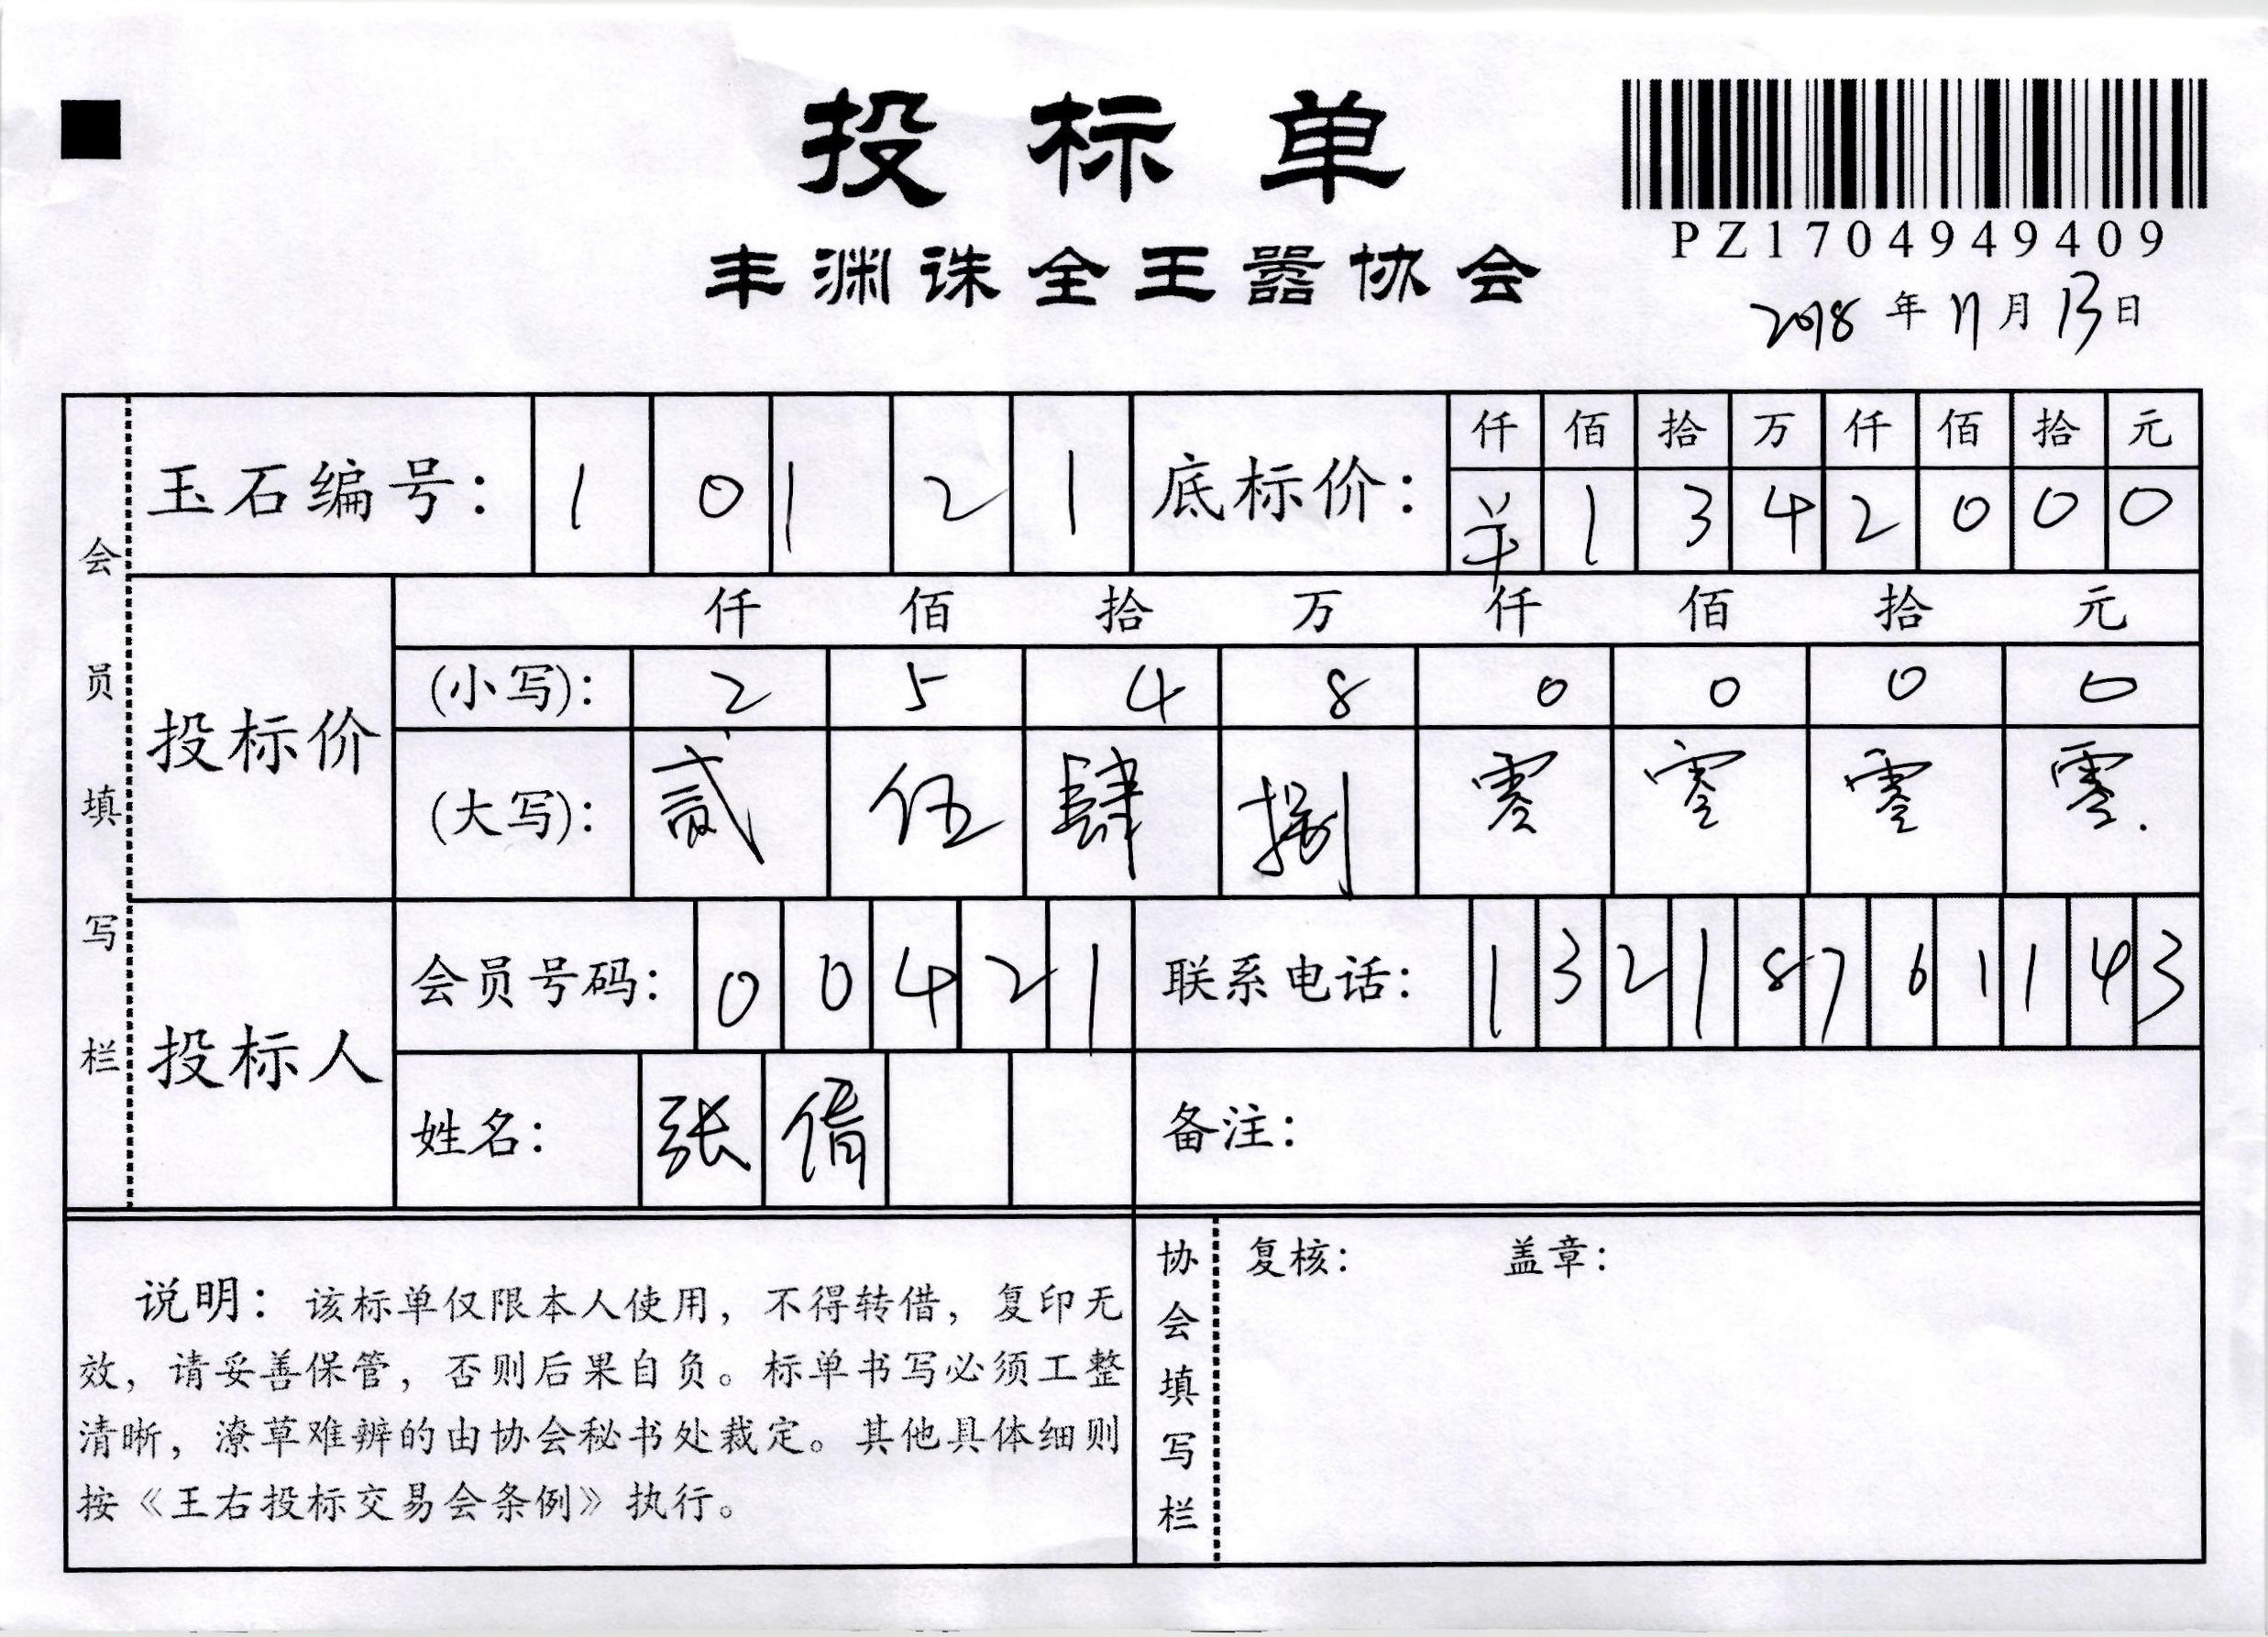 投标单
PZ1704949409
丰渊诛全王嚣协会
2018年11月13日
会员填写栏
玉石编号: 1 0 1 2 1
底标价: 仟 佰 拾 万 仟 佰 拾 元
¥ 1 3 4 2 0 0 0
投标价
仟 佰 拾 万 仟 佰 拾 元
(小写): 2 5 4 8 0 0 0 0
(大写): 贰 伍 肆 捌 零 零 零 零.
投标人
会员号码: 0 0 4 2 1
联系电话: 1 3 2 1 8 7 6 1 1 4 3
姓名: 张倩
备注:
说明: 该标单仅限本人使用, 不得转借, 复印无
效, 请妥善保管, 否则后果自负。标单书写必须工整
清晰, 潦草难辨的由协会秘书处裁定。其他具体细则
按《王右投标交易会条例》执行。
协会填写栏
复核: 盖章: